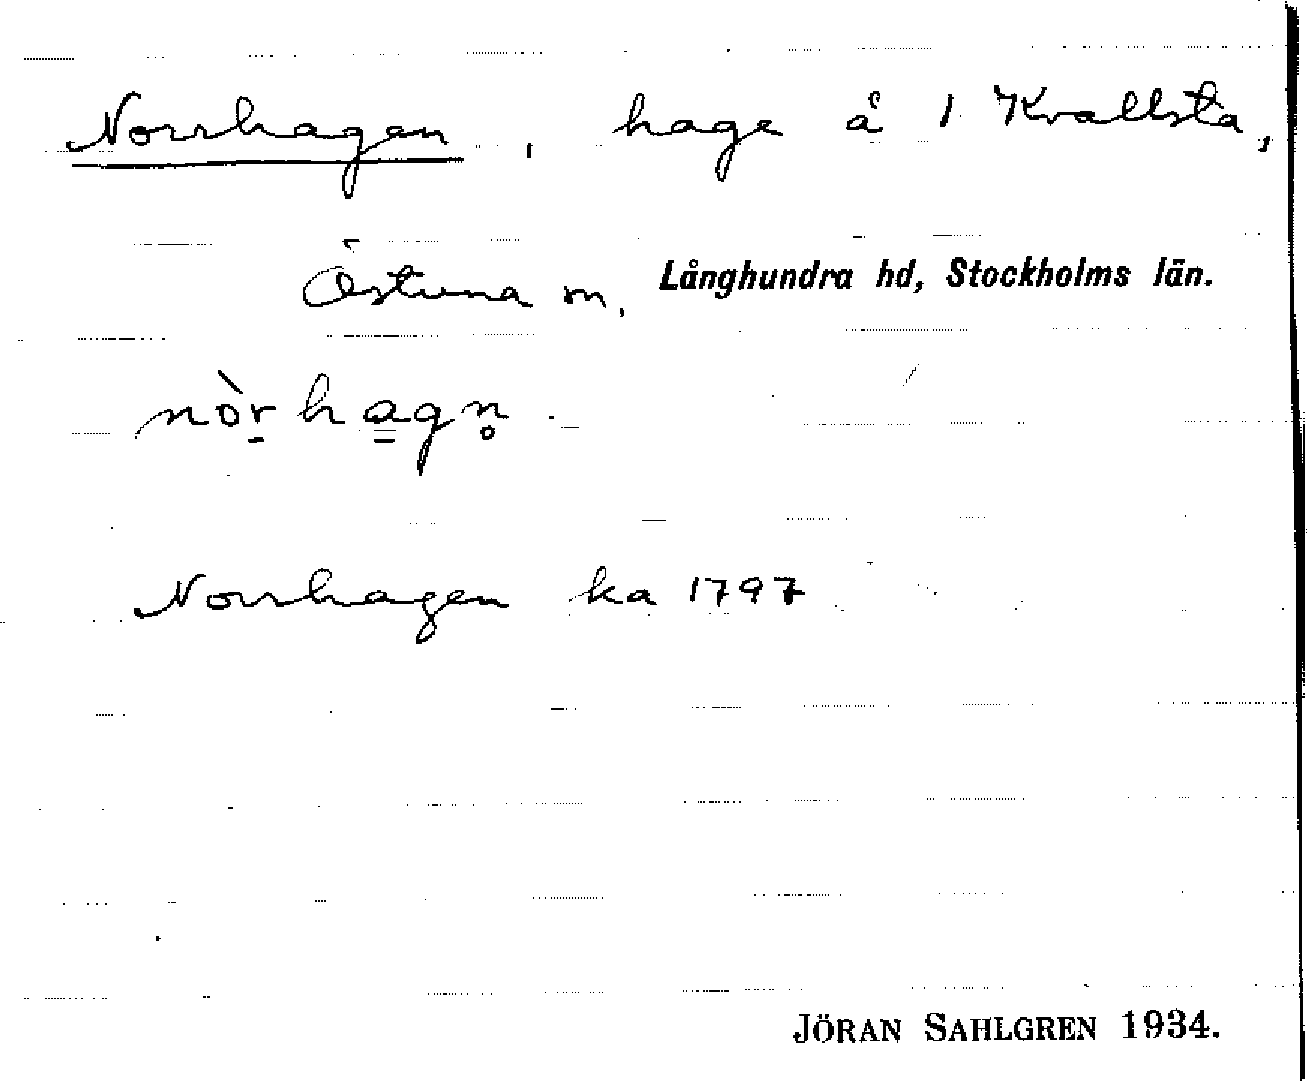 Norrhagen, hage å 1 Kvallsta,
Östuna sn, Långhundra hd, Stockholms län.
nòr̠ha̳gn̥
Norrhagen ka 1797
JÖRAN SAHLGREN 1934.